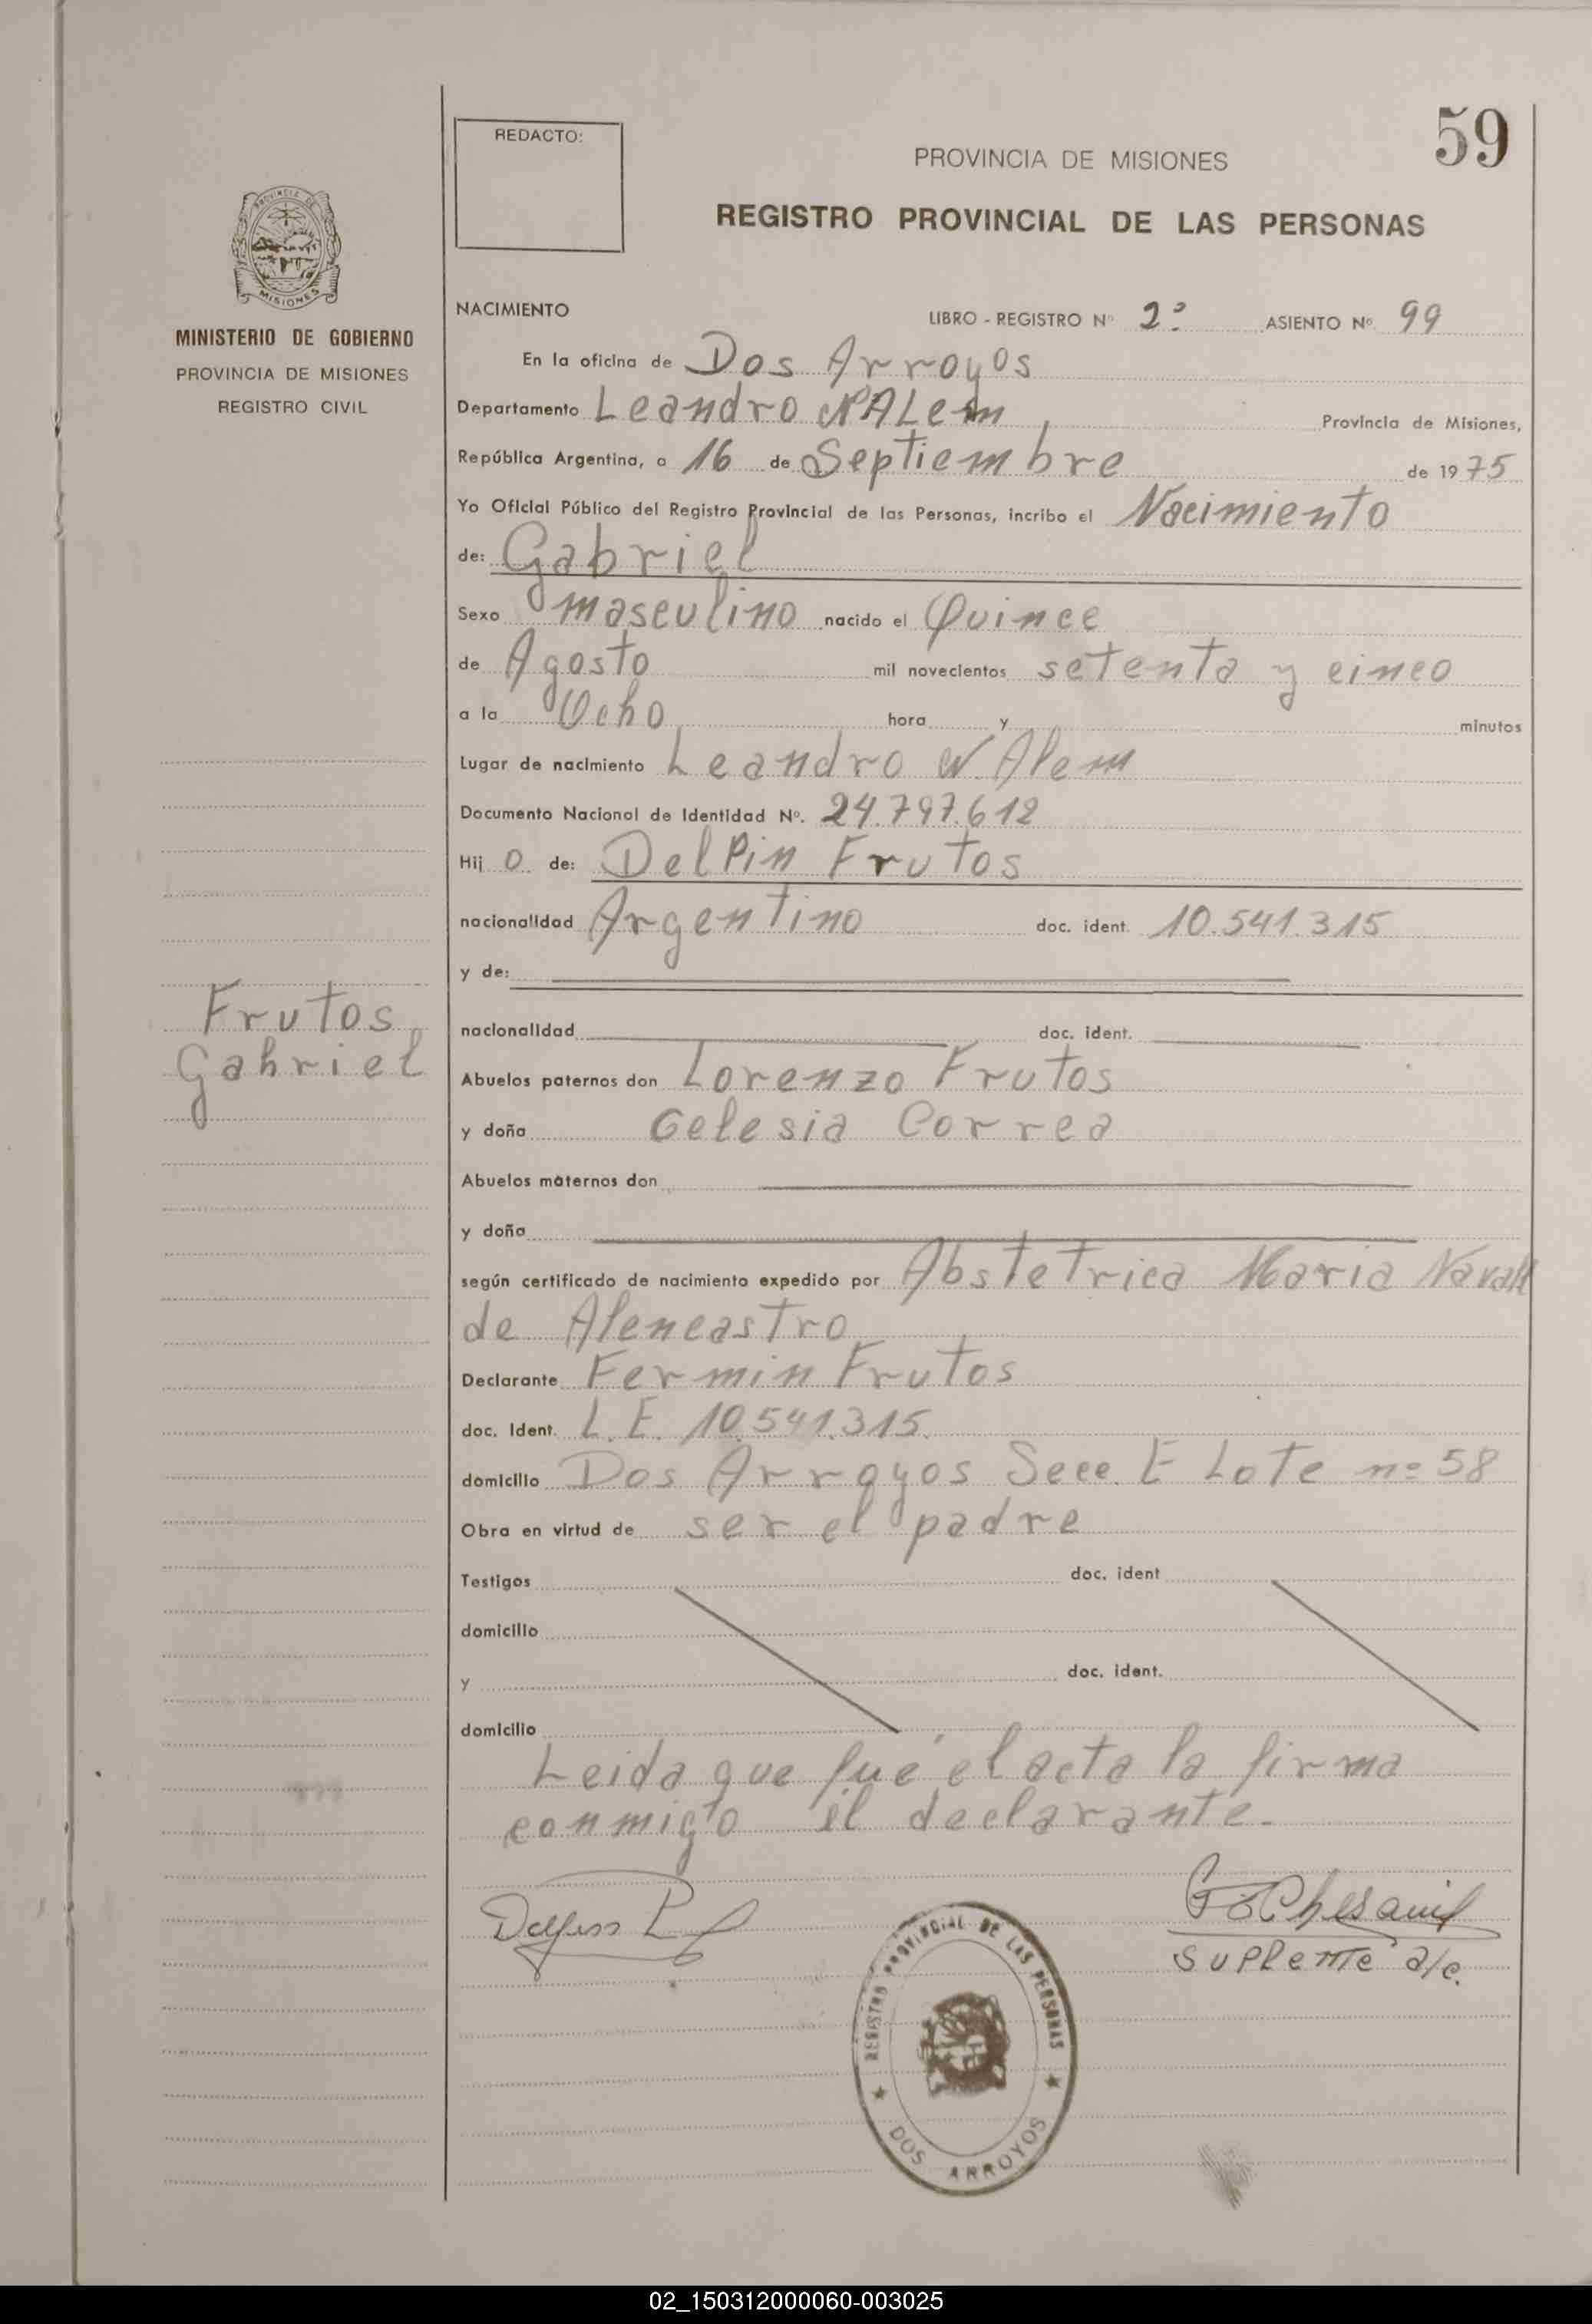 59
REDACTO:
PROVINCIA DE MISIONES
REGISTRO PROVINCIAL DE LAS PERSONAS
PROVINCIA DE
MISIONES
MINISTERIO DE GOBIERNO
PROVINCIA DE MISIONES
REGISTRO CIVIL
NACIMIENTO LIBRO - REGISTRO Nº 2º ASIENTO Nº 99
En la oficina de Dos Arroyos
Departamento Leandro N ALem Provincia de Misiones,
República Argentina, a 16 de Septiembre de 1975
Yo Oficial Público del Registro Provincial de las Personas, incribo el Nacimiento
de: Gabriel
Sexo masculino nacido el Quince
de Agosto mil novecientos setenta y cinco
a la Ocho hora y minutos
Lugar de nacimiento Leandro N. Alem
Documento Nacional de Identidad Nº. 24.797.612
Hij o de: Delpin Frutos
nacionalidad Argentino doc. ident. 10.541.315
y de:
Frutos
Gabriel
nacionalidad doc. ident.
Abuelos paternos don Lorenzo Frutos
y doña Celesia Correa
Abuelos maternos don
y doña
según certificado de nacimiento expedido por Abstetrica Maria
de Alencastro
Declarante Fermin Frutos
doc. Ident. L.E. 10.541.315.
domicilio Dos Arroyos Secc. E Lote nº 58
Obra en virtud de ser el padre
Testigos doc. ident
domicilio
y doc. ident.
domicilio
Leida que fué el acta la firma
conmigo el declarante.
suplente a/c.
REGISTRO PROVINCIAL DE LAS PERSONAS
DOS ARROYOS
02_150312000060-003025